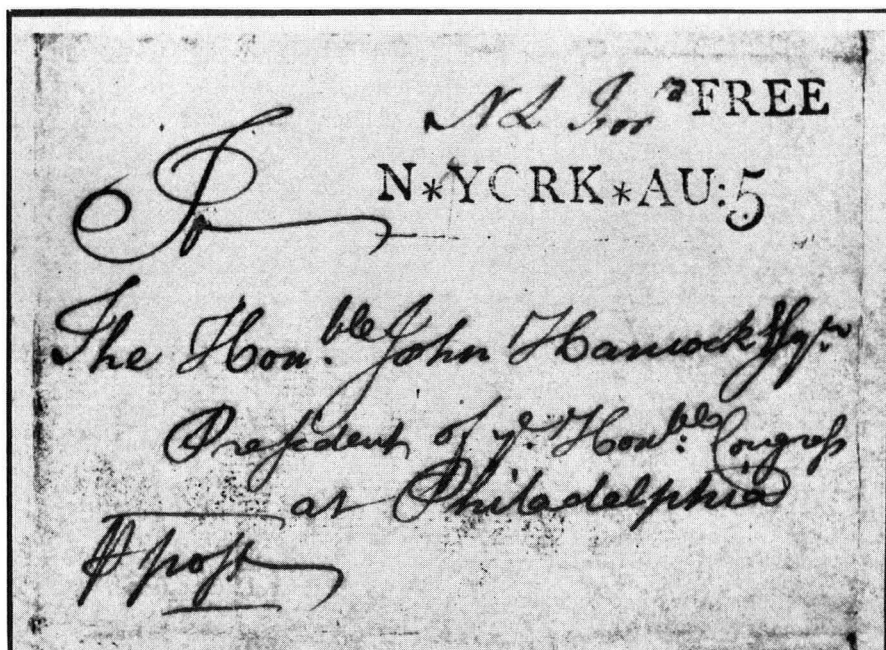 N L Lon^d FREE
N*YORK*AU:5
To
The Hon.ble John Hancock Esqr.
President of ye. Hon.ble Congress
at Philadelphia
⅌ post